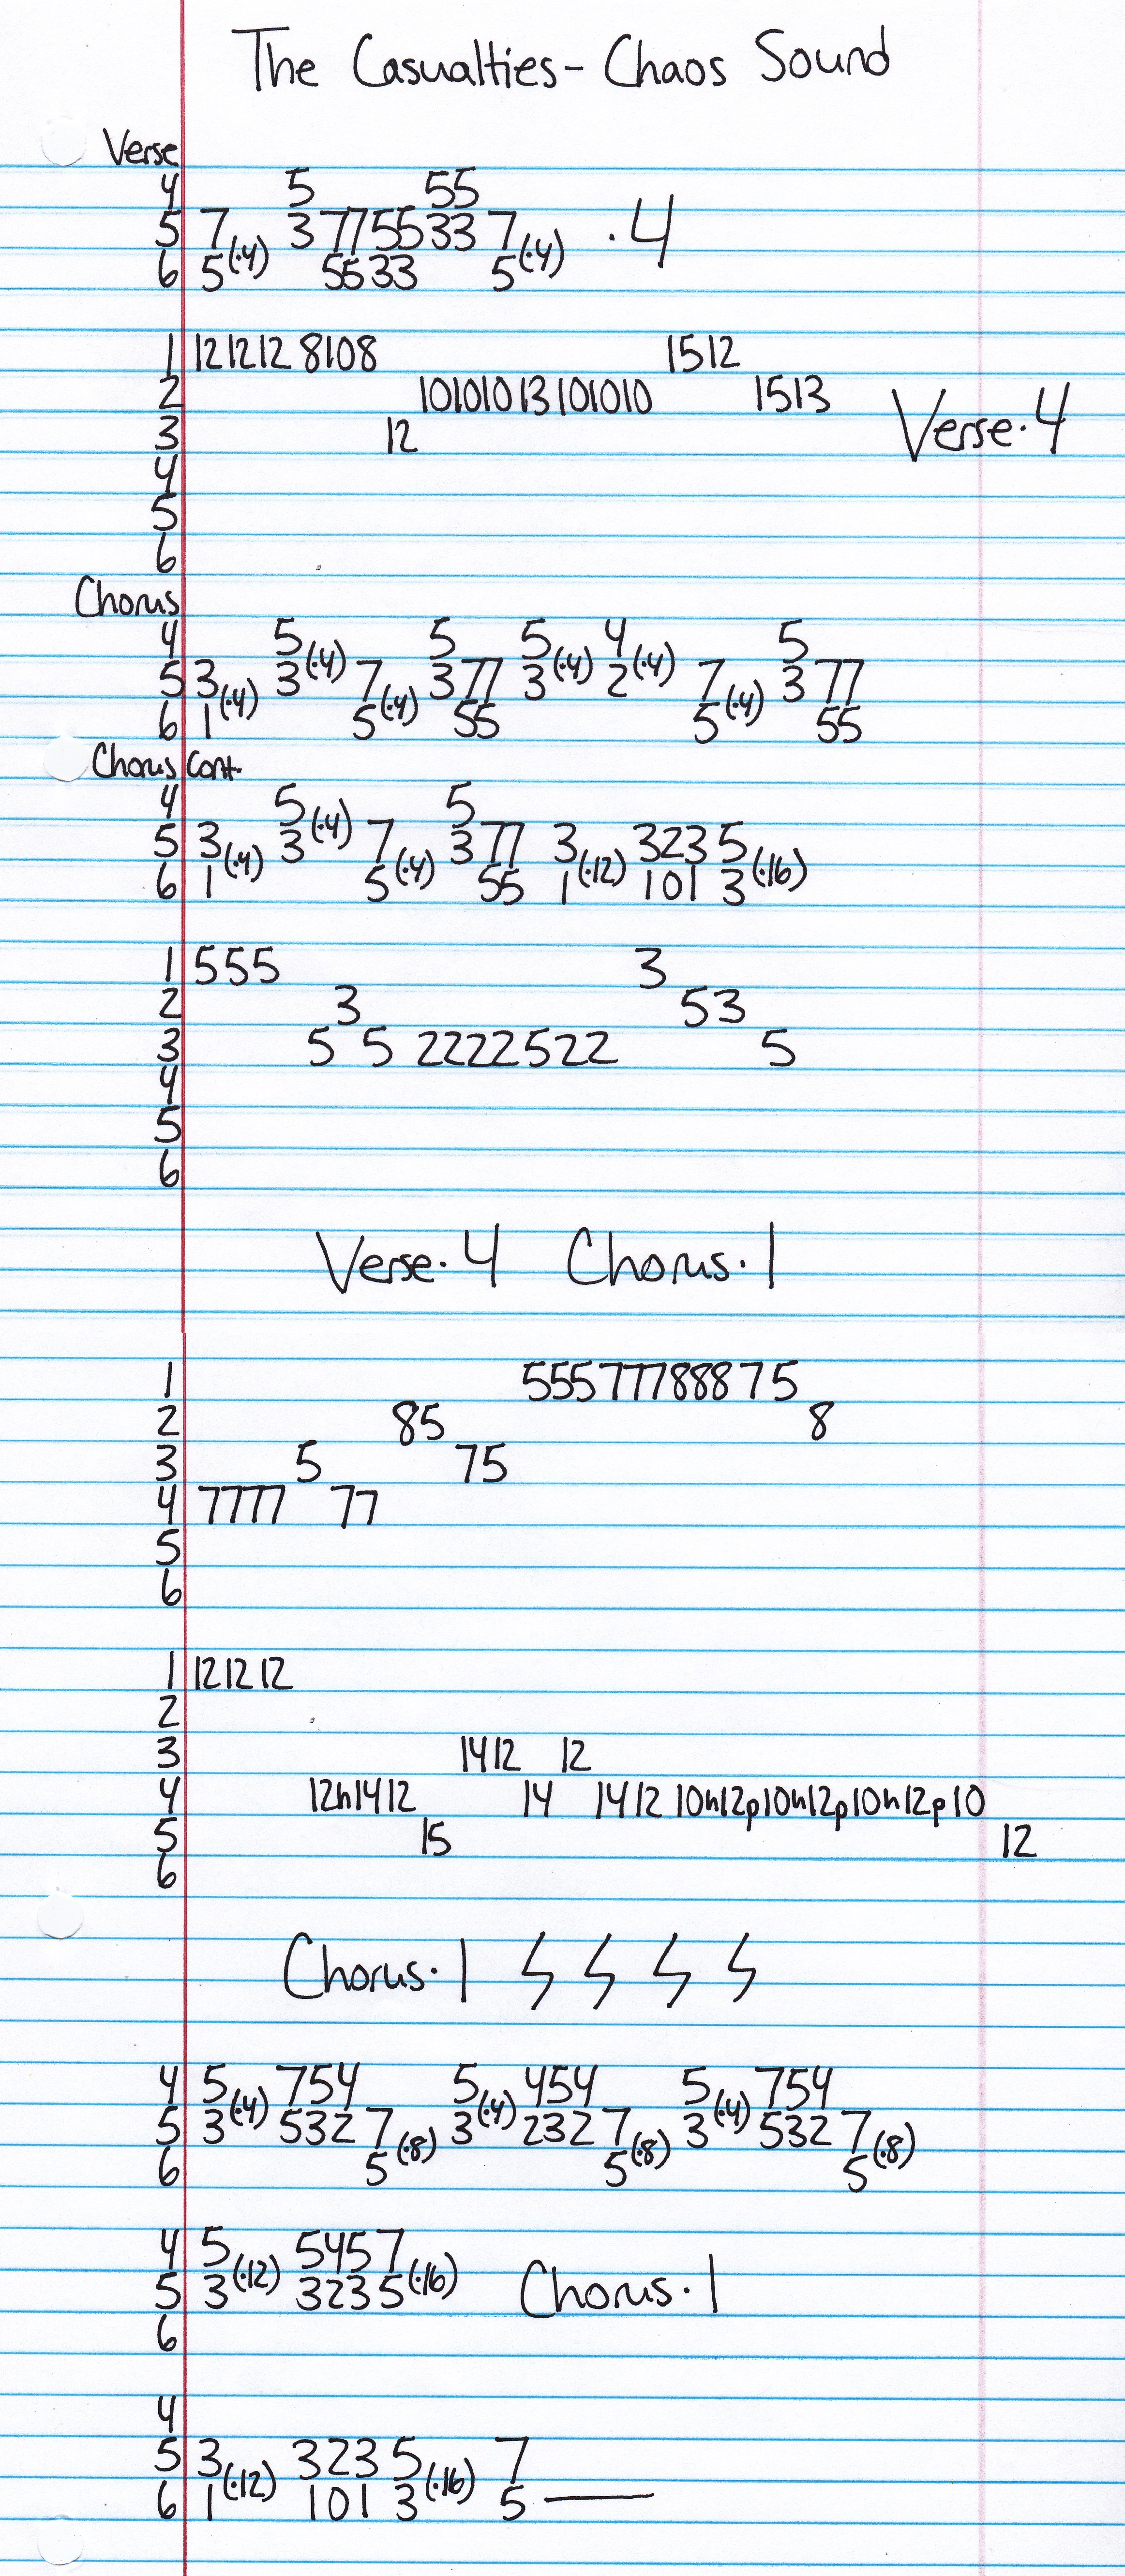 The Casualties - Chaos Sound
Verse
4 5 55
5 7(·4) 3 77 55 33 7(·4) ·4
6 5 55 33 5
1 12 12 12 8 10 8 15 12
2 10 10 10 13 10 10 10 15 13 Verse·4
3 12
4
5
6
Chorus
4 5(·4) 5 5(·4) 4(·4) 5
5 3(·4) 3 7(·4) 3 77 3 2 7(·4) 3 77
6 1 5 55 5 55
Chorus Cont.
4 5(·4) 5
5 3(·4) 3 7(·4) 3 77 3(·12) 323 5(·16)
6 1 5 55 1 101 3
1 555 3
2 3 53
3 5 5 2222522 5
4
5
6
Verse·4 Chorus·1
1 555 777 888 7 5
2 85 8
3 5 75
4 7777 77
5
6
1 12 12 12
2
3 14 12 12
4 12h14 12 14 14 12 10h12p10h12p10h12p10
5 15 12
6
Chorus·1
4 5(·4) 754 5(·4) 454 5(·4) 754
5 3 532 7(·8) 3 232 7(·8) 3 532 7(·8)
6 5 5 5
4 5(·12) 5457(·16)
5 3 3235 Chorus·1
6
4
5 3(·12) 323 5(·16) 7
6 1 101 3 5 —